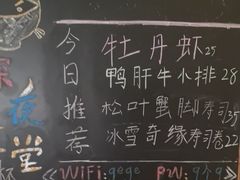 今日推荐
牡丹虾25
鸭肝牛小排28
松叶蟹脚寿司35
冰雪奇缘寿司卷22
深夜
堂
WiFi: gege PW: